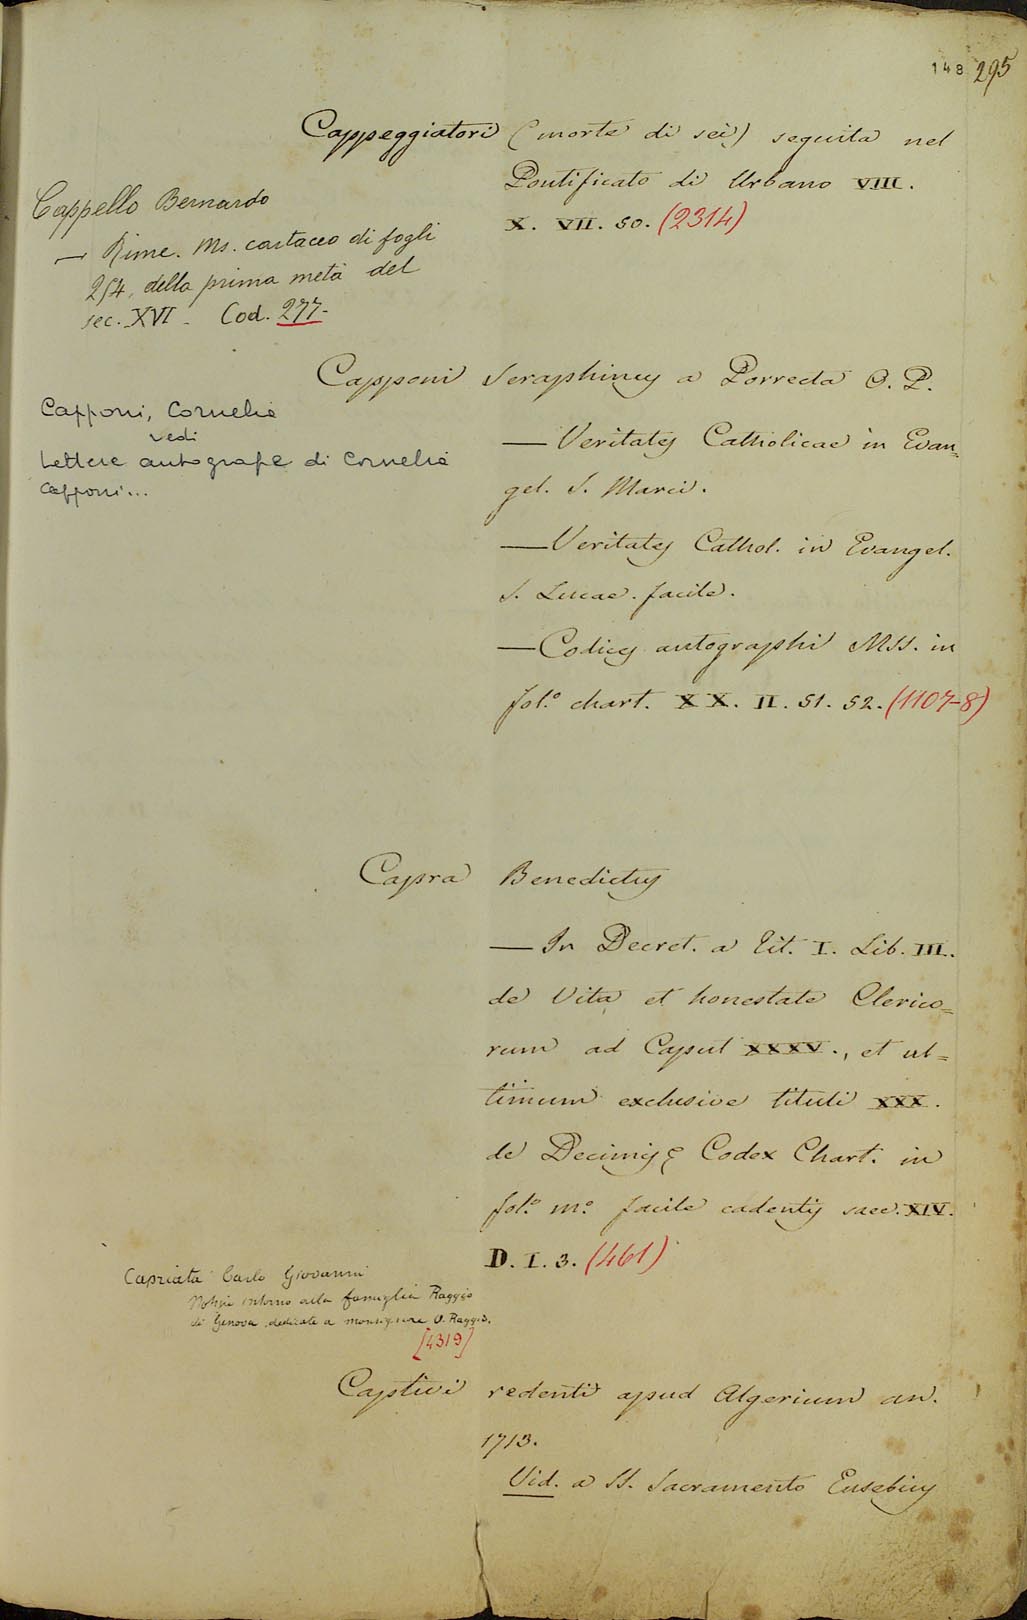 148 295
Cappeggiatori (morte di sei) seguita nel
Pontificato di Urbano VIII.
X. VII. 50. (2314)
Cappello Bernardo
— Rime. Ms. cartaceo di fogli
254, della prima metà del
sec. XVI - Cod. 277-
Capponi Seraphinus a Porrecta O. P.
— Veritates Catholicae in Evan=
gel. S. Marci.
— Veritates Cathol. in Evangel.
S. Lucae. facile.
— Codices autographi MSS. in
fol.º chart. XX. II. 51. 52. (1107-8)
Capponi, Cornelia
vedi
Lettere autografe di Cornelia
Capponi...
Capra Benedictus
— In Decret. a Tit. I. Lib. III.
de Vita et honestate Clerico=
rum ad Caput XXXV., et ul=
timum exclusive tituli XXX.
de Decimis Codex Chart. in
fol.º m.º facile cadentis saec. XIV.
D. I. 3. (461)
Capriata Carlo Giovanni
Notizie intorno alla famiglia Raggio
di Genova, dedicate a monsignore O. Raggio.
[4319]
Captivi redenti apud Algerium an.
1713.
Vid. a SS. Sacramento Eusebius